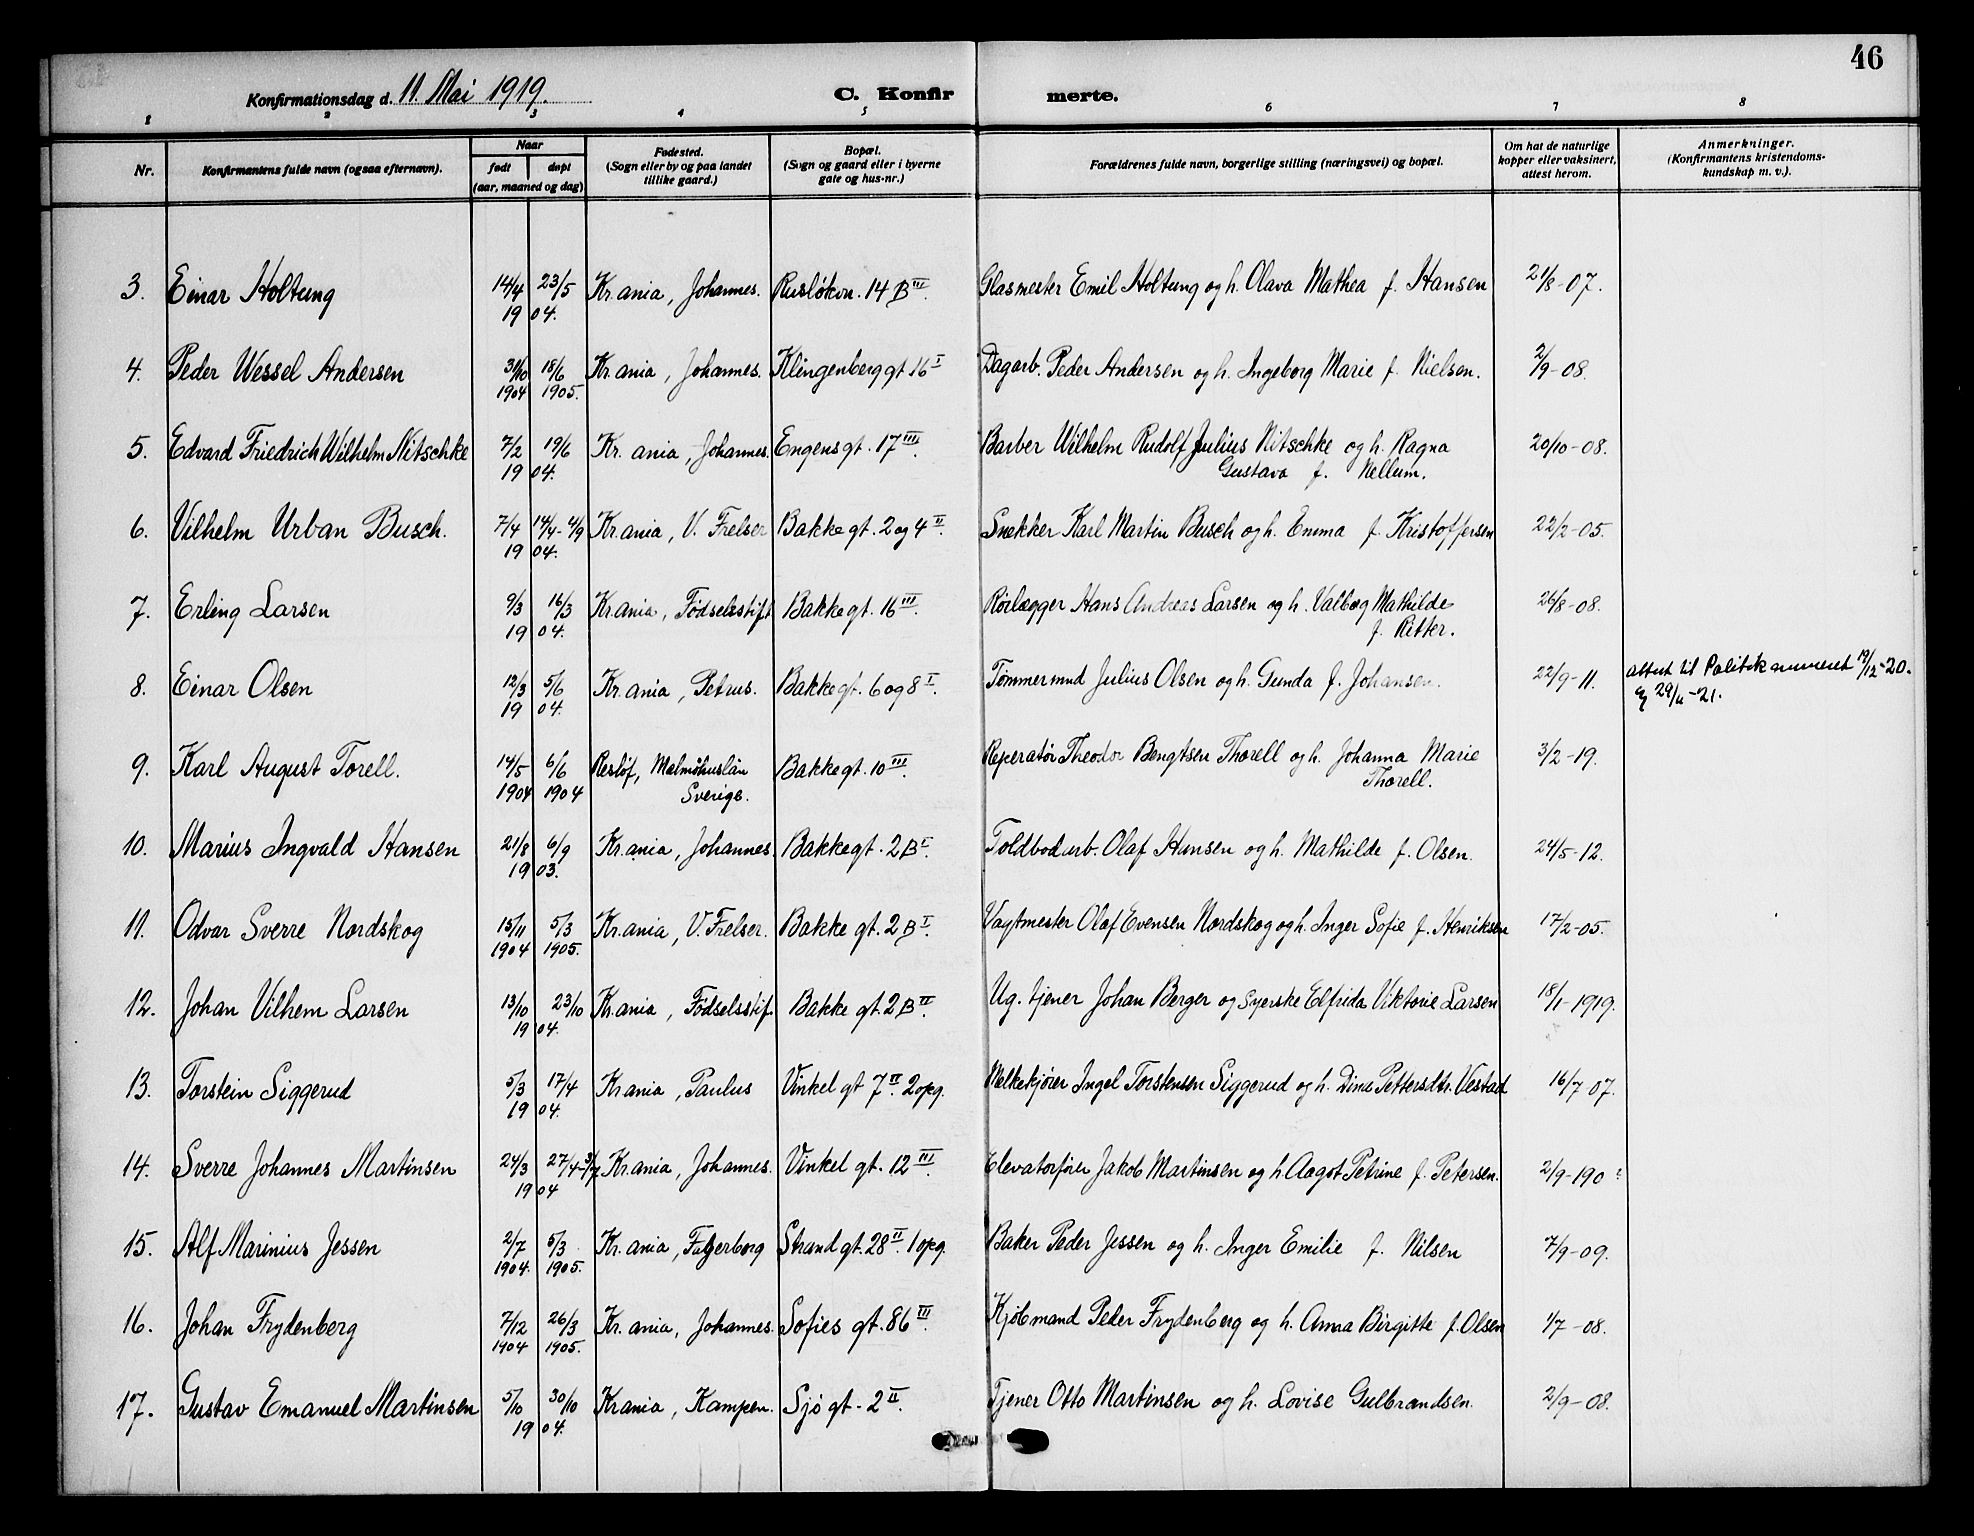 46
Konfirmationsdag d. 11. Mai 1919.
C. Konfirmerte.
1 2 3 4 5 6 7 8
Nr. Konfirmantens fulde navn (ogsaa efternavn). Naar født døpt (aar, maaned og dag) Fødested. (Sogn eller by og paa landet tillike gaard.) Bopæl. (Sogn og gaard eller i byerne gate og hus-nr.) Forældrenes fulde navn, borgerlige stilling (næringsvei) og bopæl. Om hat de naturlige kopper eller vaksinert, attest herom. Anmerkninger. (Konfirmantens kristendomskundskap m. v.).
3. Einar Holtung 14/4 23/5 Kr.ania, Johannes. Rusløkvn. 14 B III. Glasmester Emil Holtung og h. Olava Mathea f. Hansen 21/8-07.
19 04.
4. Peder Wessel Andersen 31/10 18/6 Kr.ania, Johannes. Klingenberggt 16 I Dagarb. Peder Andersen og h. Ingeborg Marie f. Nielsen. 2/9-08.
1904 1905.
5. Edvard Friedrich Wilhelm Nitschke 7/2 19/6 Kr.ania, Johannes. Engensgt. 17 III. Barber Wilhelm Rudolf Julius Nitschke og h. Ragna 20/10-08.
19 04. Gustava f. Nellum.
6. Vilhelm Urban Busch. 7/4 14/4-4/9 Kr.ania, V. Frelser Bakkegt. 2 og 4 II. Snekker Karl Martin Busch og h. Emma f. Kristoffersen 22/2-05.
19 04.
7. Erling Larsen 9/3 16/3 Kr.ania, Fødselsstift Bakkegt. 16 III. Rørlægger Hans Andreas Larsen og h. Valborg Mathilde 26/8-08.
19 04. f. Ritter.
8. Einar Olsen 12/3 5/6 Kr.ania, Petrus. Bakkegt. 6 og 8 I. Tømmermnd Julius Olsen og h. Gunda f. Johansen. 22/9-11. attest til Politikammeret 19/12-20.
19 04. 29/4-21.
9. Karl August Torell. 14/5 6/6 Reslöf, Malmöhuslän Bakkegt. 10 III. Reperatør Theodor Bengtsen Thorell og h. Johanna Marie 3/2-19.
1904 1904 Sverige. Thorell.
10. Marius Ingvald Hansen 21/8 6/9 Kr.ania, Johannes. Bakkegt. 2 B I. Toldbodarb. Olaf Hansen og h. Mathilde f. Olsen. 24/5-12.
19 03.
11. Odvar Sverre Nordskog 15/11 5/3 Kr.ania, V. Frelser. Bakke gt. 2 B I. Vagtmester Olaf Evensen Nordskog og h. Inger Sofie f. Henriksen 17/2-05.
1904 1905.
12. Johan Vilhem Larsen 13/10 23/10 Kr.ania, Fødselsstif. Bakke gt. 2 B II. Ug. tjener Johan Berger og Syerske Elfrida Viktorie Larsen 18/1-1919.
19 04.
13. Torstein Siggerud 5/3 17/4 Kr.ania, Paulus Vinkel gt 7 II. 2 opg. Melkekjører Ingel Torstensen Siggerud og h. Dina Pettersdtr. Vestad 16/7-07.
19 04.
14. Sverre Johannes Martinsen 24/3 27/4-3/7 Kr.ania, Johannes. Vinkel gt. 12 III. Elevatorfører Jakob Martinsen og h Aagot Petrine f. Petersen. 2/9-190
19 04
15. Alf Marinius Jessen 2/7 5/3 Kr.ania, Fagerborg Strand gt. 28 II. 1 opg. Baker Peder Jessen og h. Inger Emilie f. Nilsen 7/9-09.
1904. 1905.
16. Johan Frydenberg 7/12 26/3 Kr.ania, Johannes. Sofies gt. 86 III. Kjøbmand Peder Frydenberg og h. Anna Birgitte f. Olsen 1/7-08.
1904 1905.
17. Gustav Emanuel Martinsen 5/10 30/10 Kr.ania, Kampen. Sjø gt. 2 II. Tjener Otto Martinsen og h. Lovise Gulbrandsen. 2/9-08.
19 04.